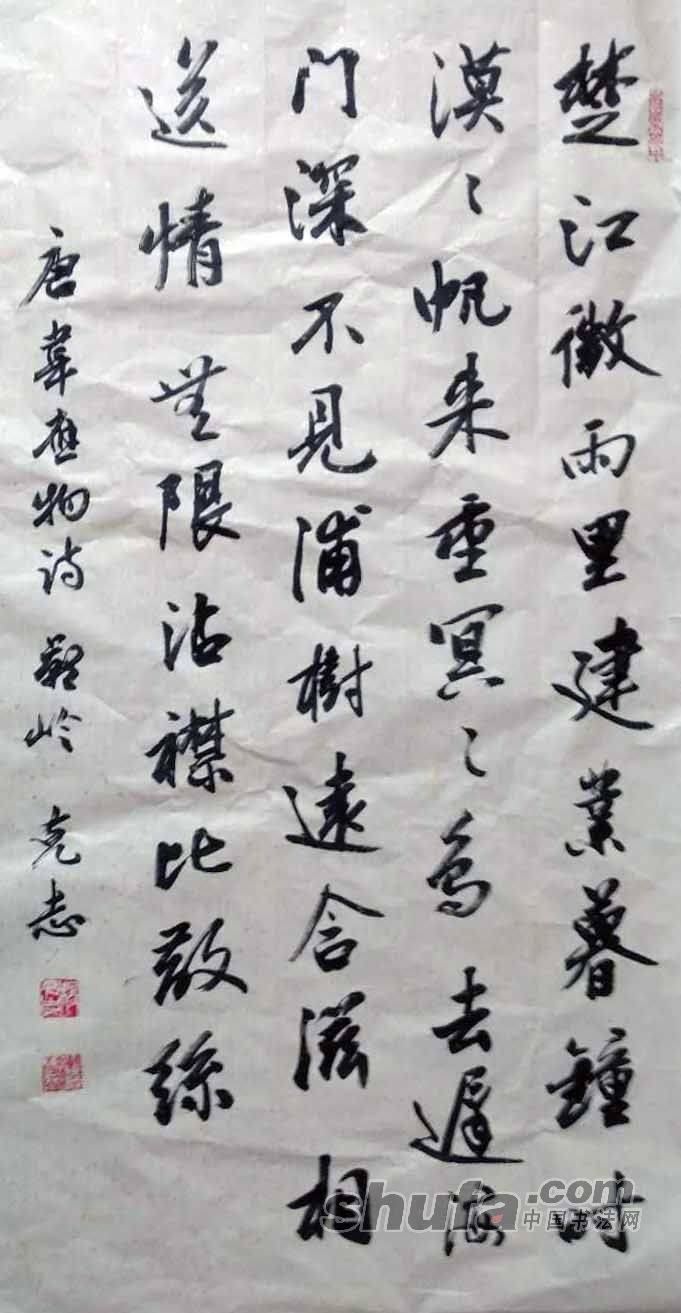 楚江微雨里建業暮鐘時
漠〻帆来重冥〻鸟去遲海
门深不見浦樹遠含滋相
送情無限沾襟比散絲
唐韋應物诗 岭 克志
shufa.com
中国书法网